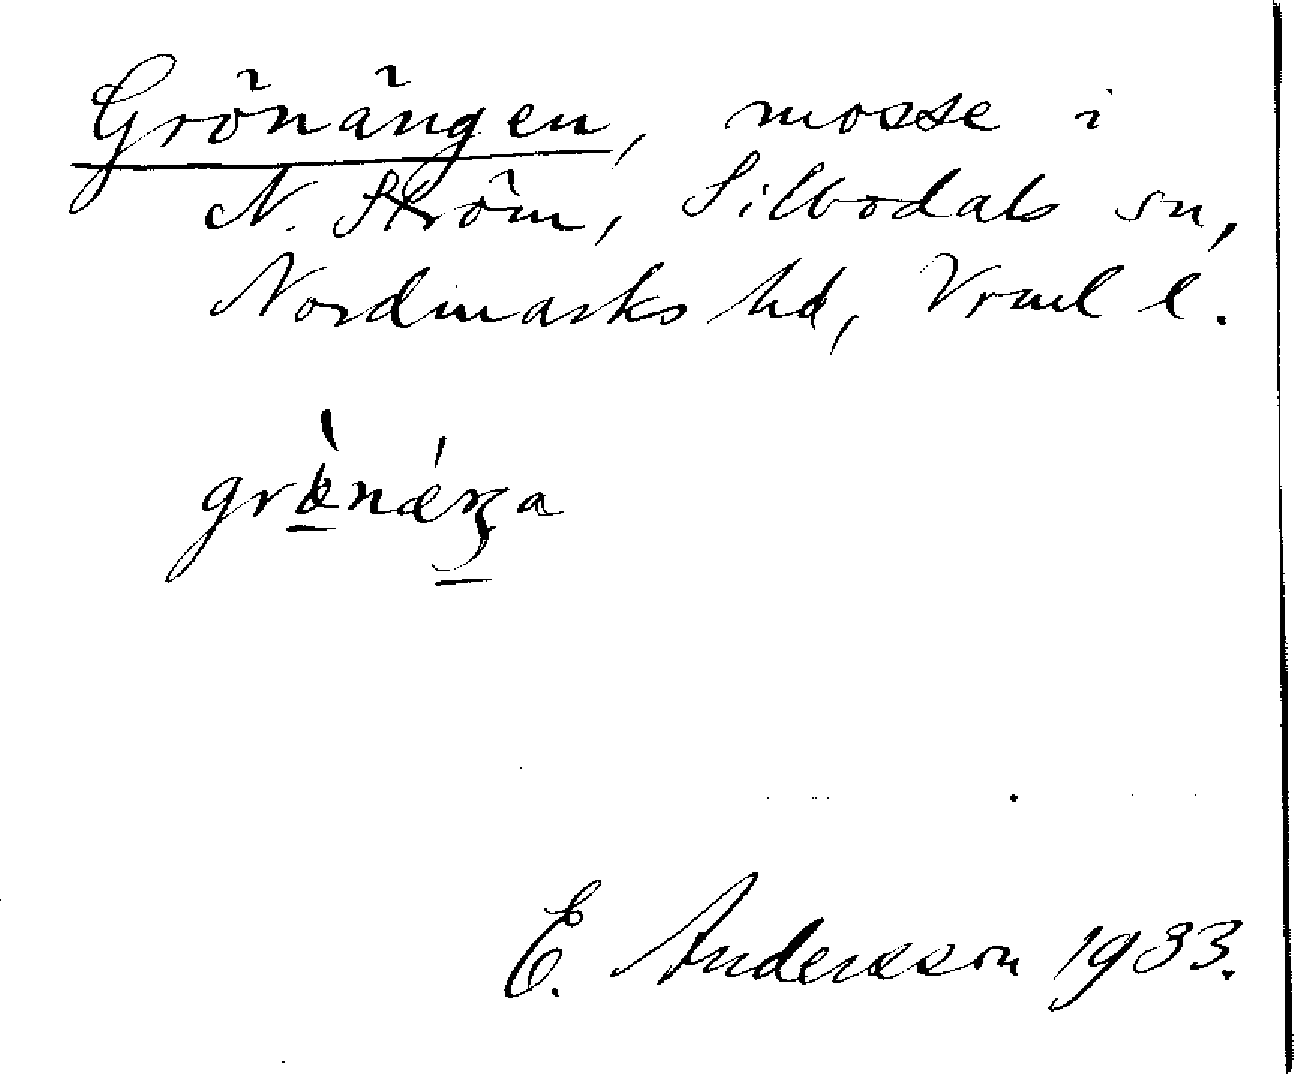 Grönängen, mosse i
N. Ström, Silbodals sn,
Nordmarks hd, Vrml l.
E. Andersson 1933.